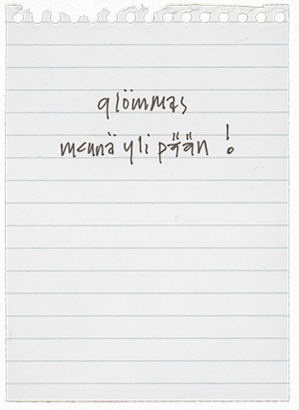 glömmas
mennä yli pään !